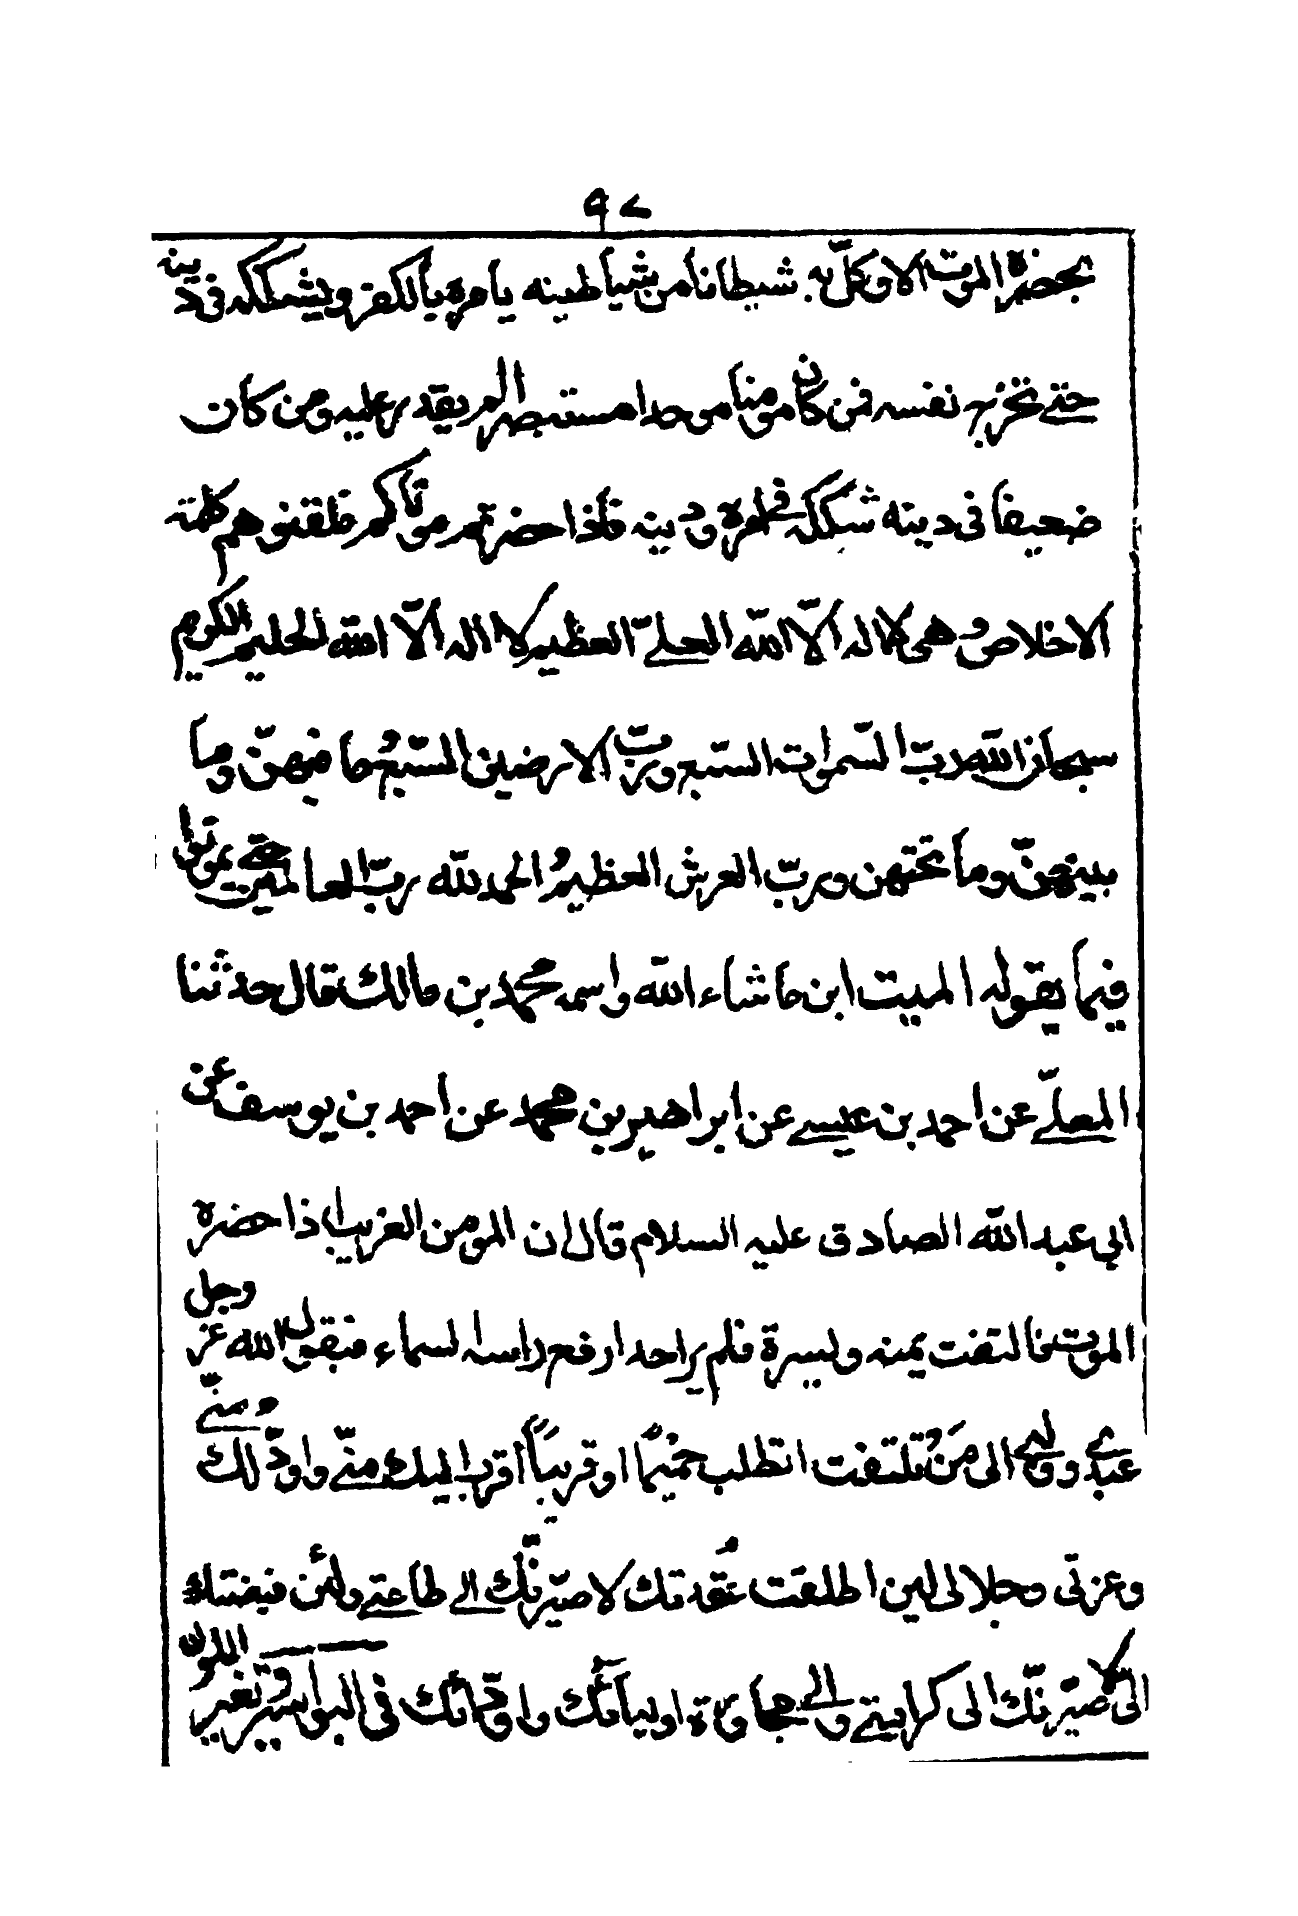 ٩٧
بحضرة الموت الا وكلّ به شيطانا من شياطينه يامره بالكفر ويشككه فى دينه
حتے تخرج نفسه فمن كان مومنا موحدا مستبصرا لم يقدر عليه ومن كان
ضعيفا فى دينه شككه فى امره ودينه فاذا حضرتم موتاكم فلقنوهم كلمة
الاخلاص وهى لا اله الّا اللّه العلےّ العظيم لا اله الّا اللّه الحليم الكريم
سبحان اللّه ربّ السّموات السّبع وربّ الارضين السّبع وما فيهنّ وما
بينهنّ وما تحتهن وربّ العرش العظيم والحمد للّه ربّ العالمين حتے يموت
فيما يقوله الميت ابن ما شاء اللّه واسمه محمد بن مالك قال حدثنا
المعلےّ عن احمد بن عيسے عن ابراهيم بن محمد عن احمد بن يوسف عن
ابى عبد اللّه الصادق عليه السلام قال ان المومن الغريب اذا حضره
الموت فالتفت يمنه ويسرة فلم ير احدا رفع راسه السماء فيقول اللّه عز وجل
عبدے ووليے الى من تلتفت اتطلب حميمًا او قريبًا أقرب اليك منّے واودّ لك ومنّے
وعزتى وجلالى لين اطلقت عُقدتك لاصيّرنّك الے طاعتے ولئن قبضتك
الىّ لاصيّرنّك الى كرامتے والے مجاورة اوليائك واودّائك فى البواسير وتغير اللون